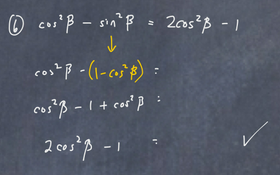 ⑥ cos²β − sin²β = 2cos²β − 1
cos²β − (1 − cos²β) =
cos²β − 1 + cos²β =
2cos²β − 1 =